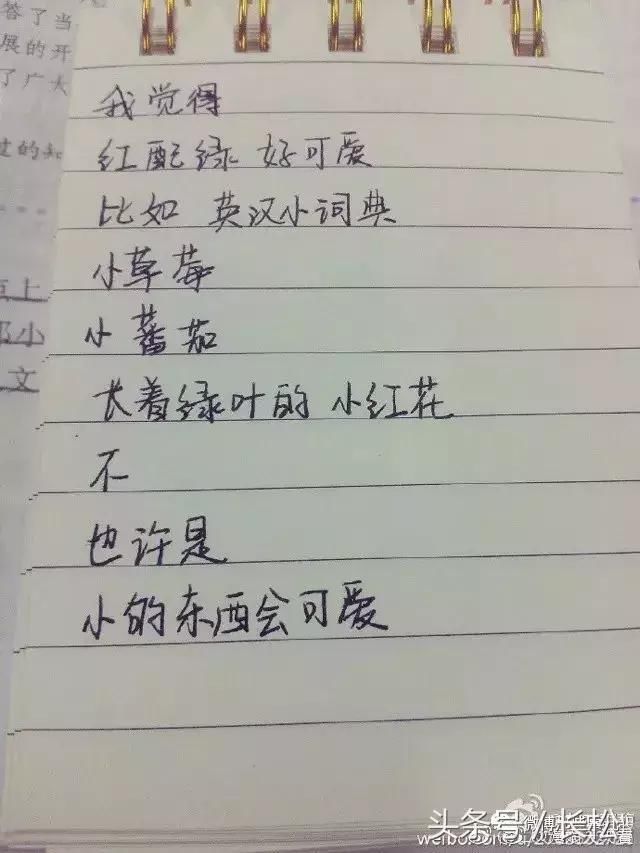 答了当
展的开
了广大
过的知
上
小
文
我觉得
红配绿 好可爱
比如 英汉小词典
小草莓
小蕃茄
长着绿叶的 小红花
不
也许是
小的东西会可爱
头条号/长松